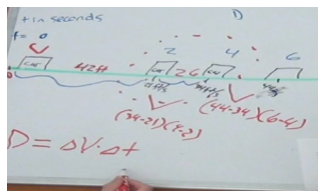 t in seconds
D
t = 0
2
4
6
car
42ft
car
26
car
(34-21)(4-2)
(44-34)(6-4)
D = ΔV·Δt